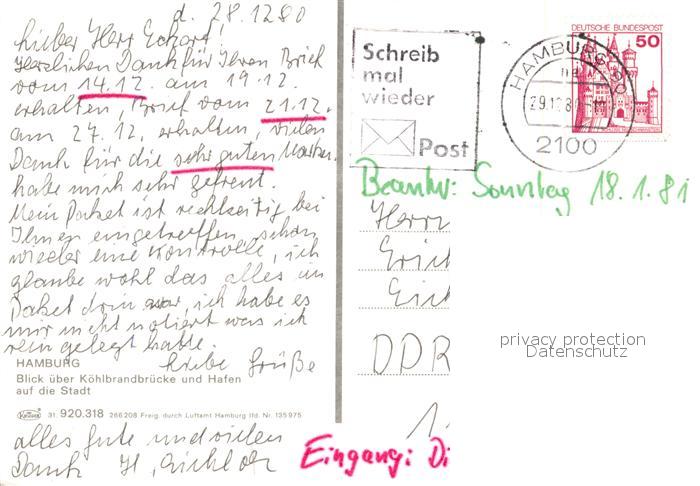 d. 28.1280
lieber Herr Eckart,
Herzlichen Dank für Ihren Brief
vom 14.12. am 19.12.
erhalten, Brief vom 21.12.
am 27.12. erhalten, vielen
Dank für die sehr guten Marken
habe mich sehr gefreut.
Mein Paket ist rechtzeitig bei
Ihnen eingetroffen, schon
wieder eine Kontrolle, ich
glaube wohl das alles im
Paket drin war, ich habe es
mir nicht notiert was ich
rein gelegt hatte.
liebe Grüße
HAMBURG
Blick über Köhlbrandbrücke und Hafen
auf die Stadt
Krüger 31. 920.318 266208 Freig. durch Luftamt Hamburg lfd. Nr. 135975
alles gute und vielen
Dank H.
Schreib
mal
wieder
Post
HAMBURG
29.12.80
2100
DEUTSCHE BUNDESPOST
50
Beantw: Sonntag 18.1.81
Herrn
DDR
1
Eingang: Di
privacy protection
Datenschutz